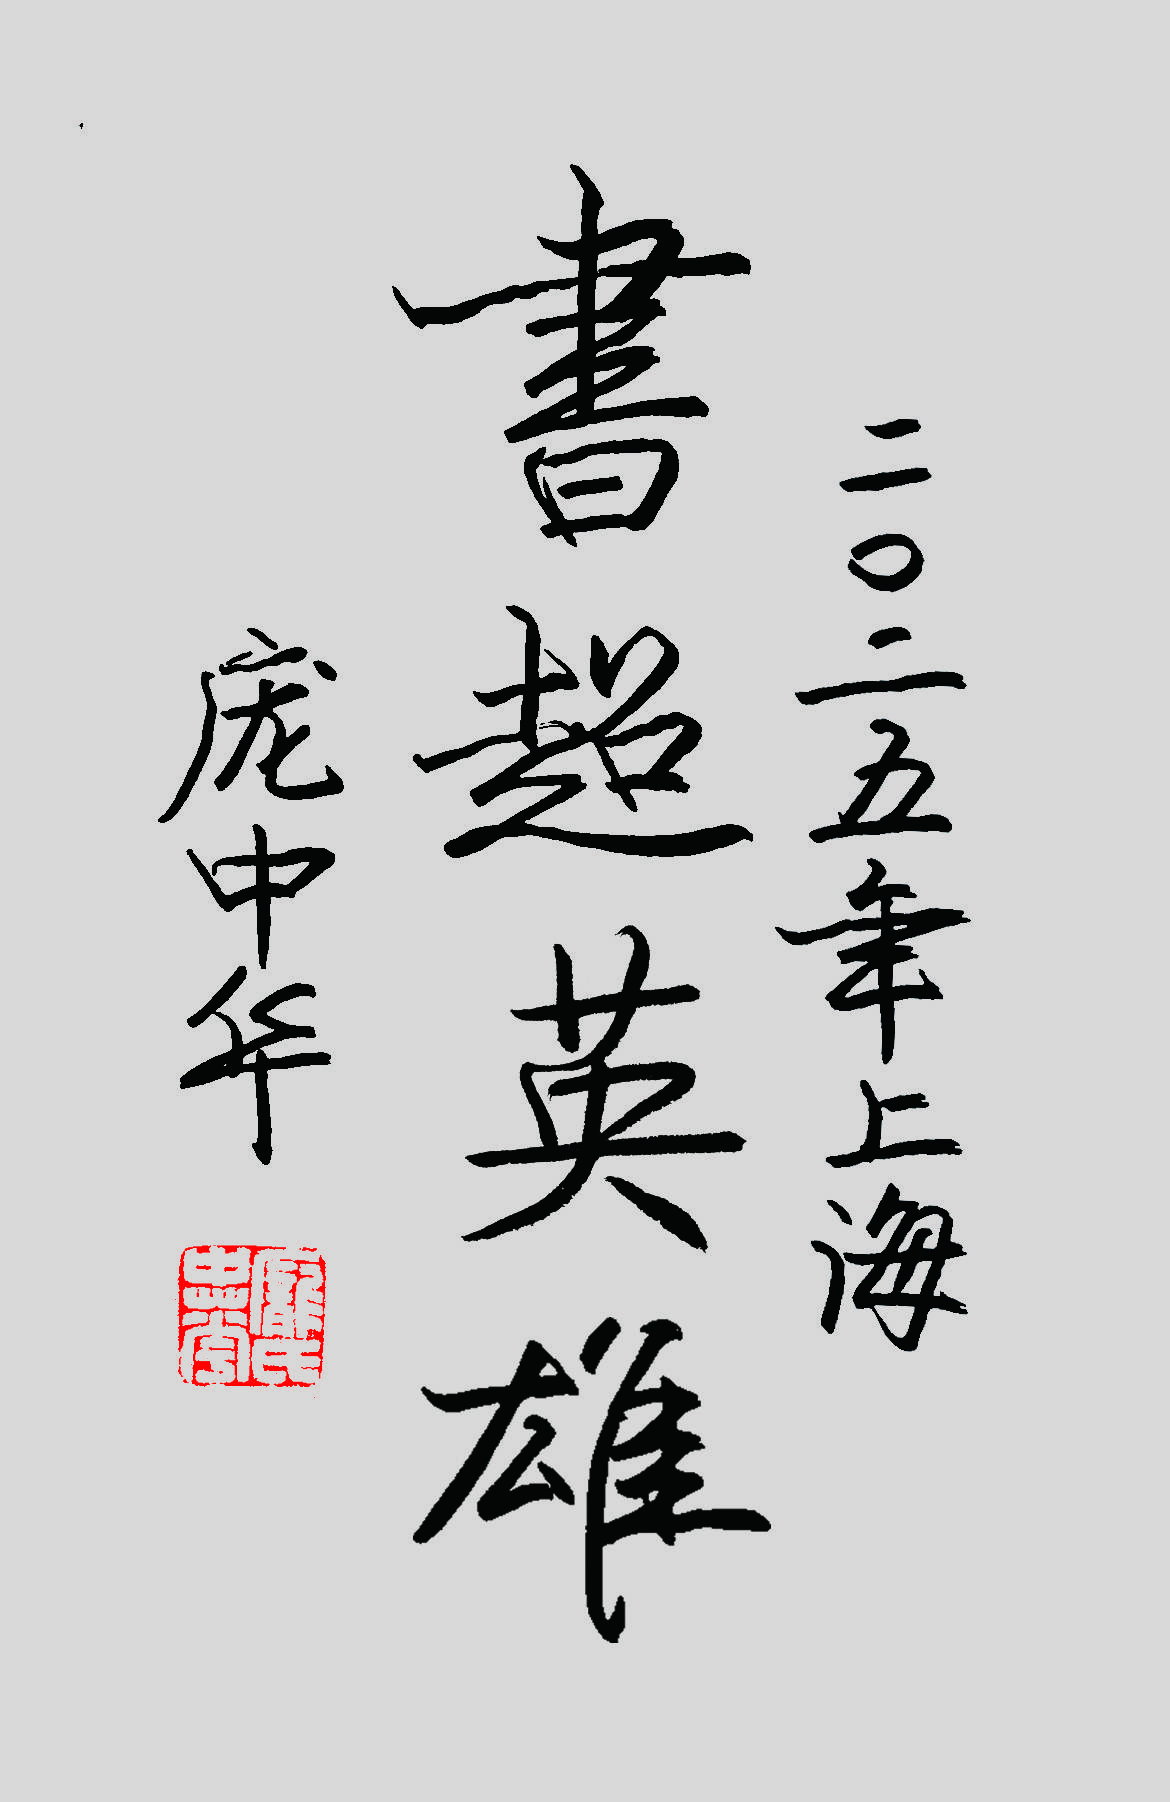 二〇二五年上海
書超英雄
庞中华